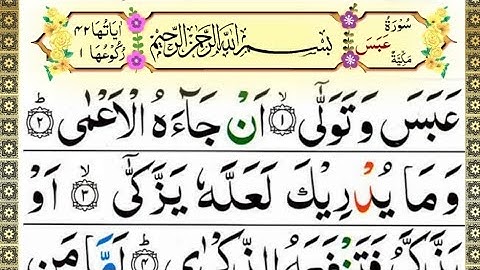 سُوْرَةُ عَبَسَ مَكِّيَّةٌ بِسْمِ اللّٰهِ الرَّحْمٰنِ الرَّحِيْمِ اٰيَاتُهَا ٤٢ رُكُوْعُهَا ١
عَبَسَ وَ تَوَلّٰۤى ۙ﴿۱﴾ اَنْ جَآءَهُ الْاَعْمٰى ؕ﴿۲﴾
وَ مَا يُدْرِيْكَ لَعَلَّهٗ يَزَّكّٰۤى ۙ﴿۳﴾ اَوْ
يَذَّكَّرُ فَتَنْفَعَهُ الذِّكْرٰى ؕ﴿۴﴾ اَمَّا مَنِ